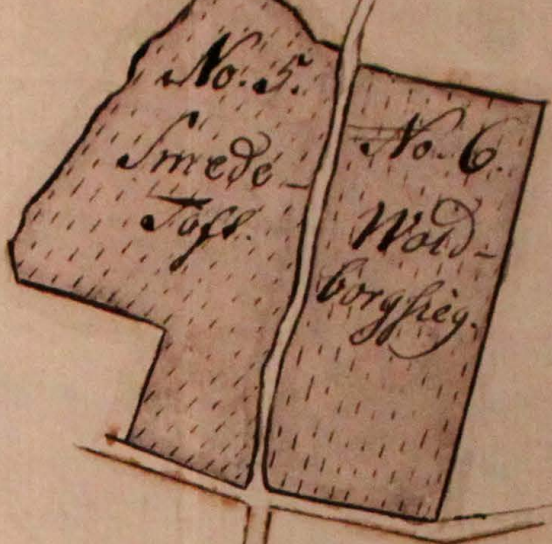 No. 5.
Smede-
Toft.
No. 6.
Wold-
borgsieg.